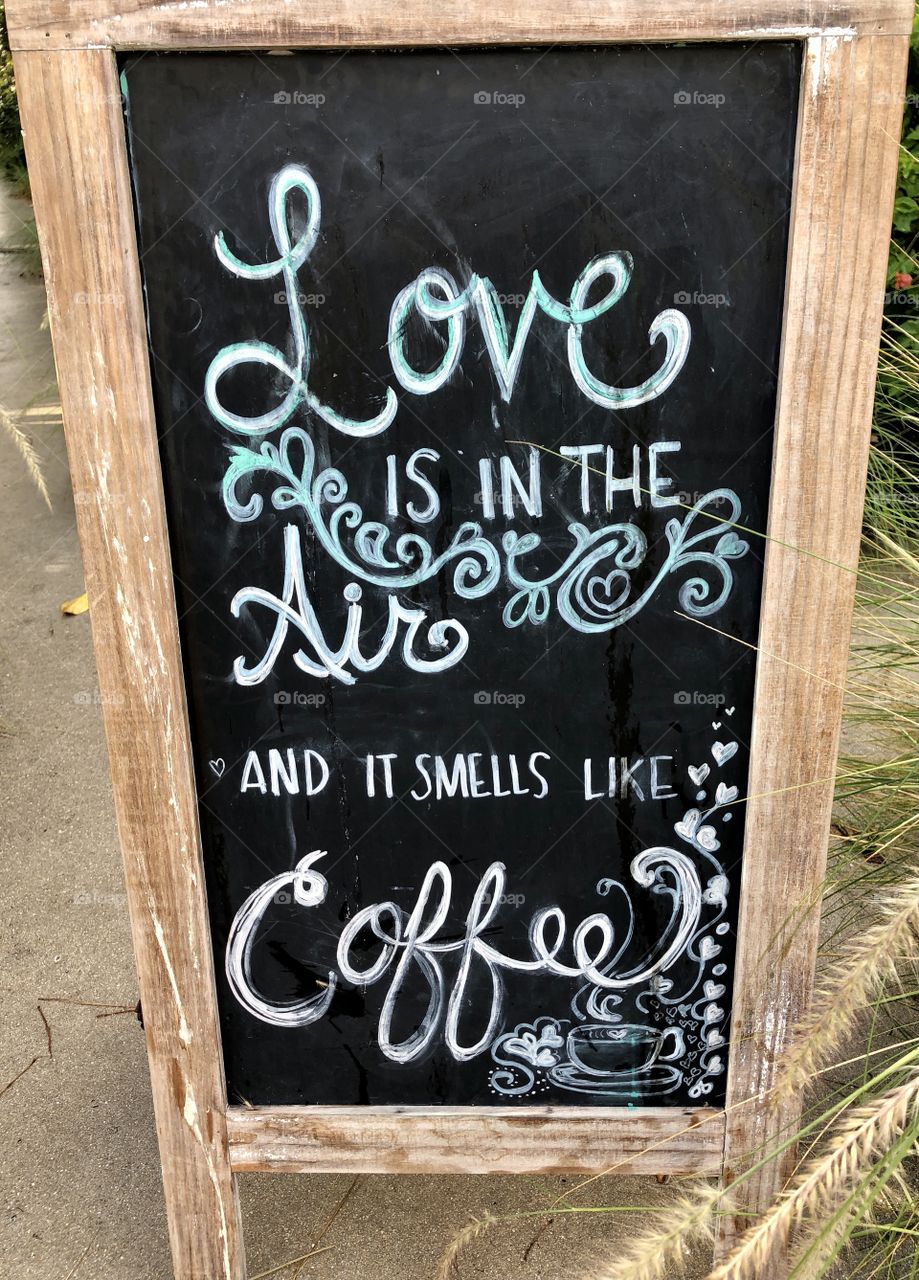 Love
IS IN THE
Air
AND IT SMELLS LIKE
Coffee
foap